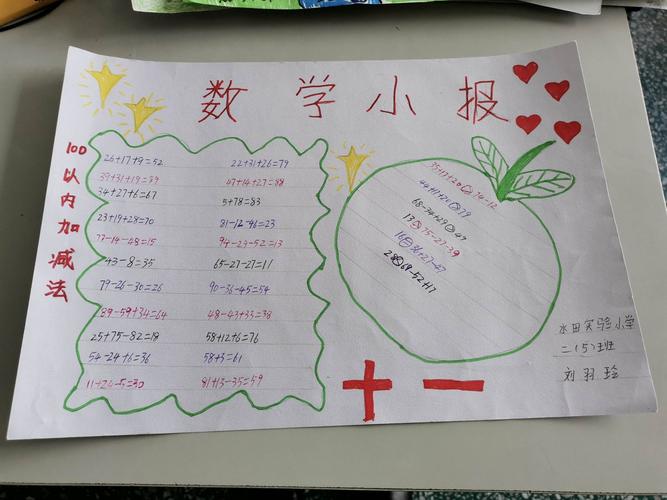 数学小报
100以内加减法
26+17+9=52
22+31+26=79
39+31+19=89
47+14+27=88
34+27+6=67
5+78=83
23+19+28=70
81-12-46=23
77-14-48=15
94-29-52=13
43-8=35
65-27-27=11
79-26-30=26
90-36-45=54
89-59+34=64
48-43+33=38
25+75-82=18
58+12+6=76
54-24+6=36
58+3=61
11+24-5=30
81+13-35=59
68-34+29
75-27-39
36+27-47
69-52+17
+ −
水田实验小学
二(5)班
刘羽珍